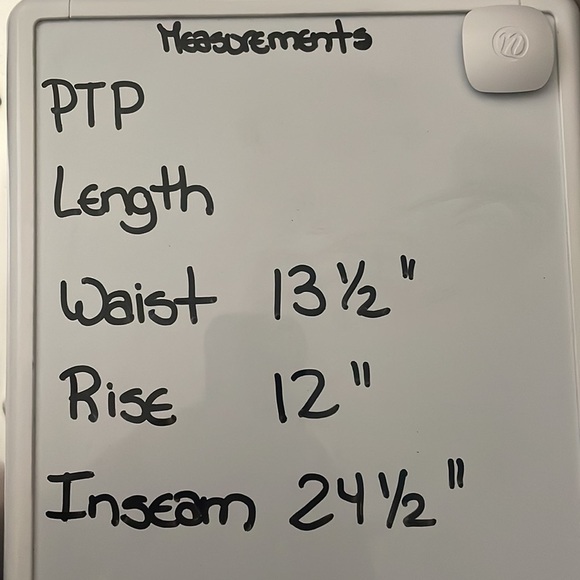 Measurements
PTP
Length
Waist 13 ½"
Rise 12"
Inseam 24 ½"